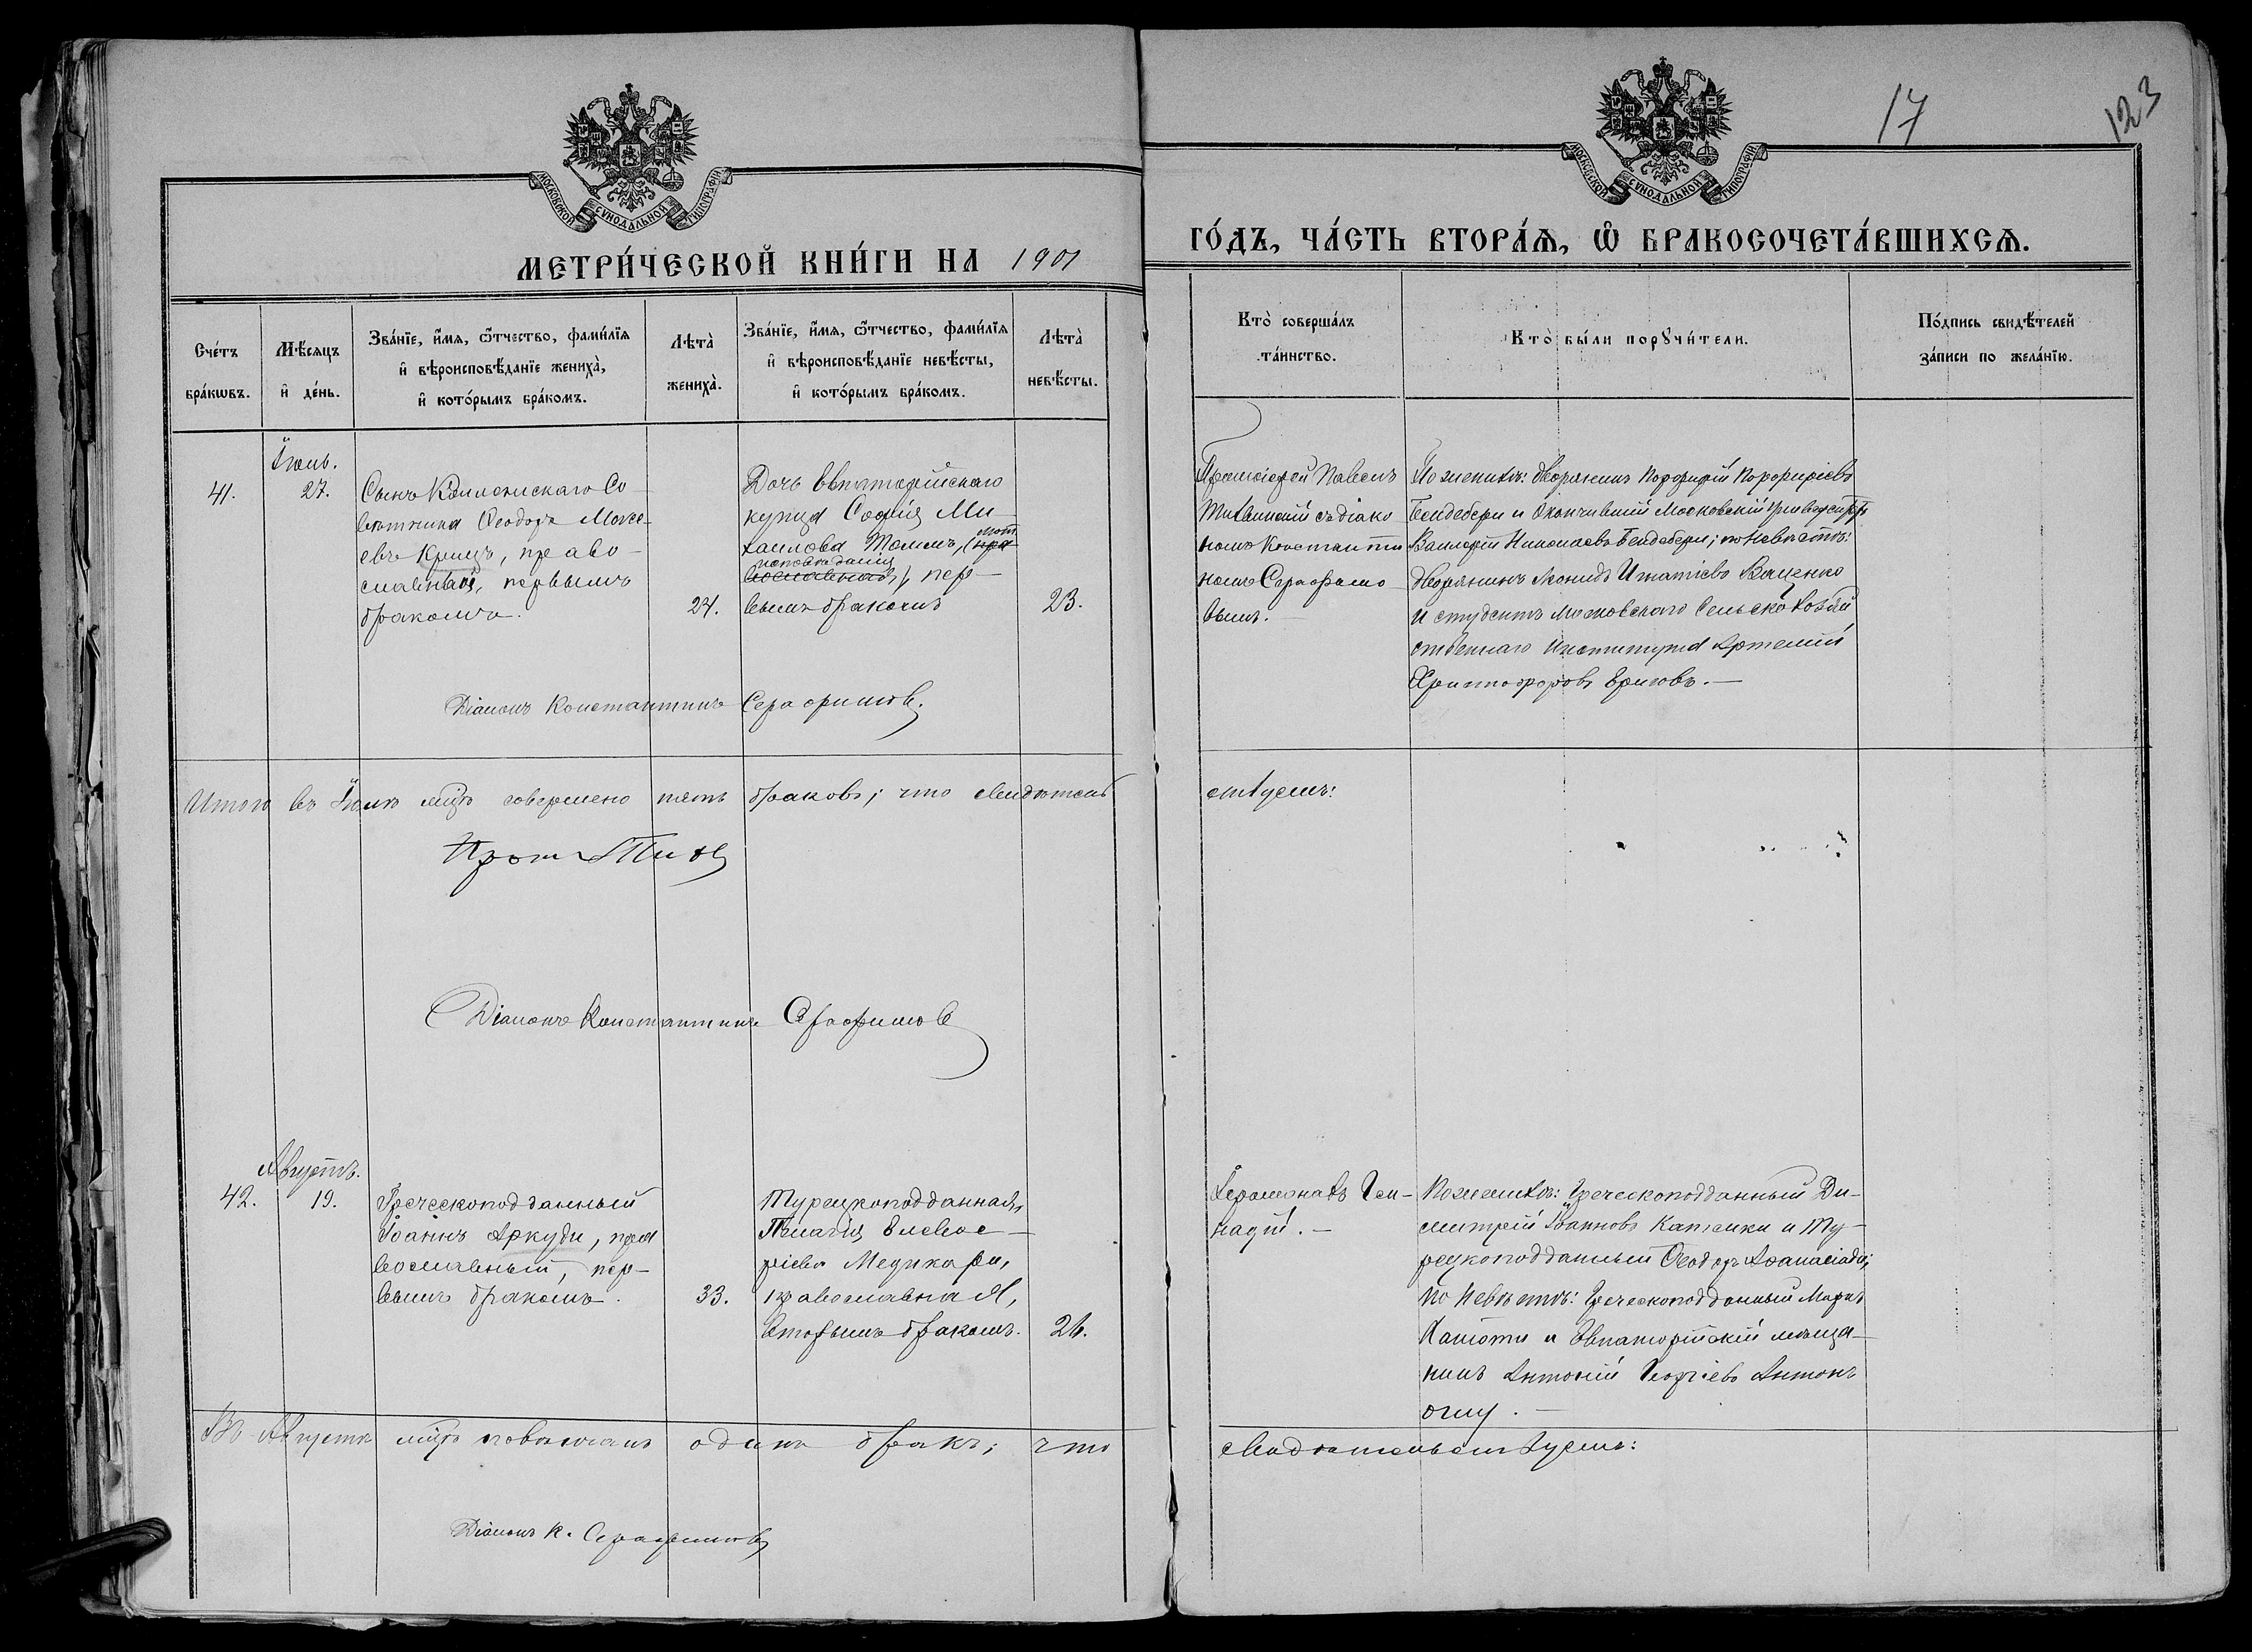 17
123
МОСКОВСКОЙ СѴНОДАЛЬНОЙ ТИПОГРАФІИ
МОСКОВСКОЙ СѴНОДАЛЬНОЙ ТИПОГРАФІИ
МЕТРИ́ЧЕСКОЙ КНИ́ГИ НА 1901
ГО́ДЪ, ЧА́СТЬ ВТОРА́Ѧ, Ѡ҆ БРАКОСОЧЕТА́ВШИХСѦ.
Сче́тъ
бра́кѡвъ.
Мѣ́сяцъ
и҆ де́нь.
Зва́нїе, и҆́мя, ѻ҆́тчество, фами́лїя
и҆ вѣроисповѣ́данїе жениха̀,
и҆ кото́рымъ бра́комъ.
Лѣта̀
жениха̀.
Зва́нїе, и҆́мя, ѻ҆́тчество, фами́лїя
и҆ вѣроисповѣ́данїе невѣ́сты,
и҆ кото́рымъ бра́комъ.
Лѣта̀
невѣ́сты.
Кто̀ соверша́лъ
та́инство.
Кто̀ бы́ли порꙋчи́тели.
По́дпись свидѣ́телей
за́писи по жела́нїю.
41.
Іюль.
27.
Сынъ Коллежскаго Со
вѣтника Ѳеодоръ Моисе-
евъ Крицъ, право-
славный, первымъ
бракомъ.
24.
Дочь Евпаторійскаго
купца Софія Ми-
хаилова Томъ,
исповѣданія
пер-
вымъ бракомъ
23.
Протоіерей Павелъ
Тихвинскій съ діако
номъ Константи
номъ Серафимо
вымъ.
По женихѣ: дворянинъ Порфирій Порфиріевъ
Бендебери и Окончившій Московскій Университетъ
Валерій Николаевъ Бендебери; по невѣстѣ:
дворянинъ Леонидъ Игнатіевъ Ваценко
и студентъ Московскаго Сельскохозяй
ственнаго Института Артемій
Христофоровъ Ериговъ.
Діаконъ Константинъ Серафимовъ.
Итого въ Іюлѣ мцѣ совершено пять браковъ; что свидѣтель
ствуемъ:
Діаконъ Константинъ Серафимовъ
42.
Августъ.
19.
Греческоподданный
Іоаннъ Аркуди, пра
вославный, пер-
вымъ бракомъ.
33.
Турецкоподданная
Пелагія Елевѳе-
ріева Медикари,
православная,
вторымъ бракомъ.
26.
Іеромонахъ Ген-
надій.
По женихѣ: Греческоподданный Ди-
митрій Іоанновъ Капсики и Ту-
рецкоподданный Ѳеодоръ Аѳанасіади;
по невѣстѣ: Греческоподданный Маркъ
и Евпаторійскій мѣща-
нинъ Антоній Георгіевъ Антонъ
оглу.
Въ Августѣ мцѣ повѣнчанъ одинъ бракъ; что
свидѣтельствуемъ:
Діаконъ К. Серафимовъ